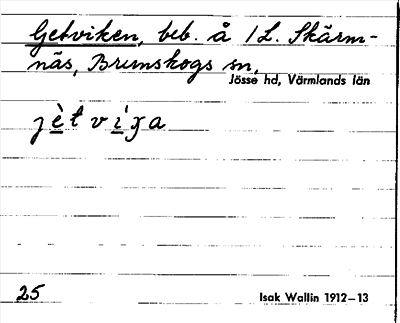 Getviken, beb. å 1 L. Skärm-
näs, Brunskogs sn,
Jösse hd, Värmlands län
jètvíʒa
25
Isak Wallin 1912–13